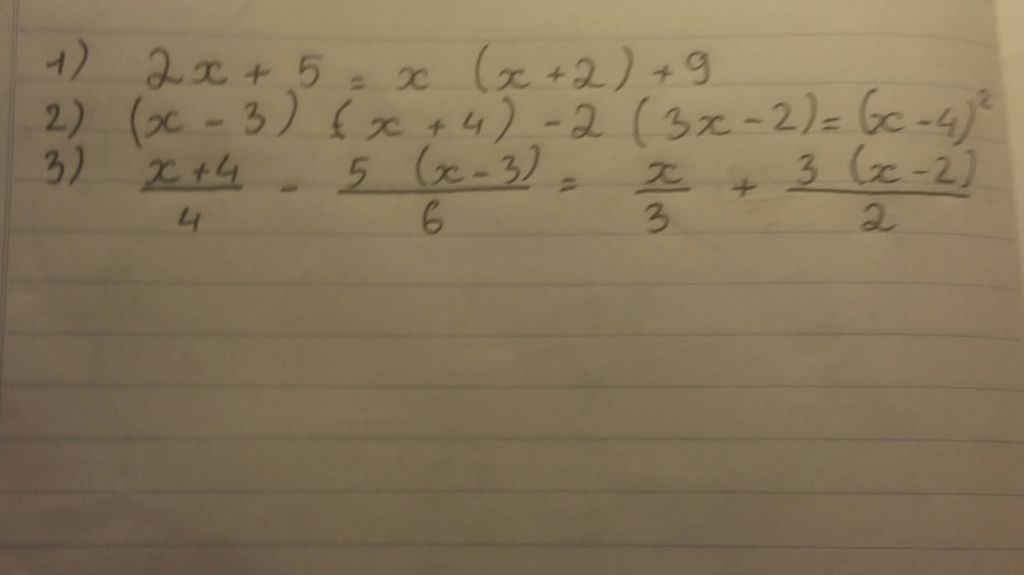 1) 2x + 5 = x (x + 2) + 9
2) (x - 3) (x + 4) - 2 (3x - 2) = (x - 4)²
3) (x + 4)/4 - 5 (x - 3)/6 = x/3 + 3 (x - 2)/2